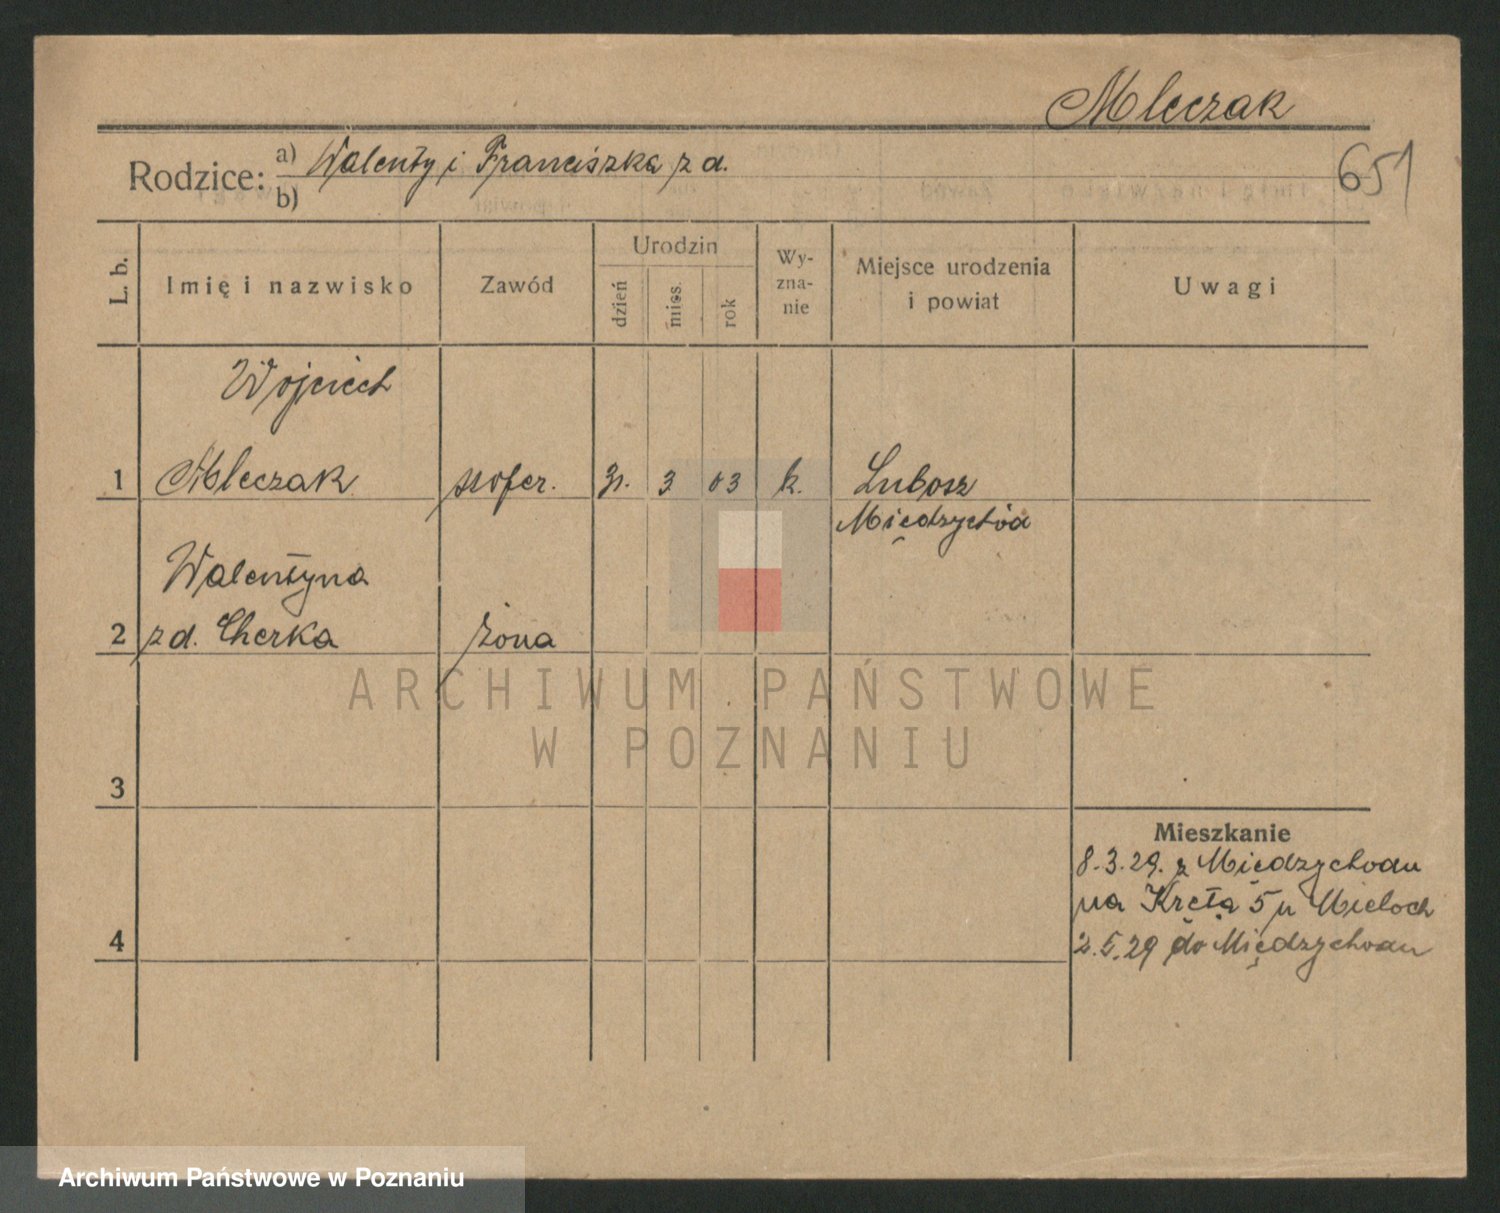 Mleczak
651
Rodzice: a) Walenty i Franciszka z d.
b)
L. b.
Imię i nazwisko
Zawód
Urodzin
dzień
mies.
rok
Wy-
zna-
nie
Miejsce urodzenia
i powiat
Uwagi
Wojciech
1 Mleczak szofer. 31. 3 03 k. Lubosz
Międzychód
Walentyna
2 z d. Cherka żona
ARCHIWUM PAŃSTWOWE
W POZNANIU
3
Mieszkanie
8.3.29. z Międzychodu
na Krętą 5 u Mieloch
4
2.5.29 do Międzychodu
Archiwum Państwowe w Poznaniu